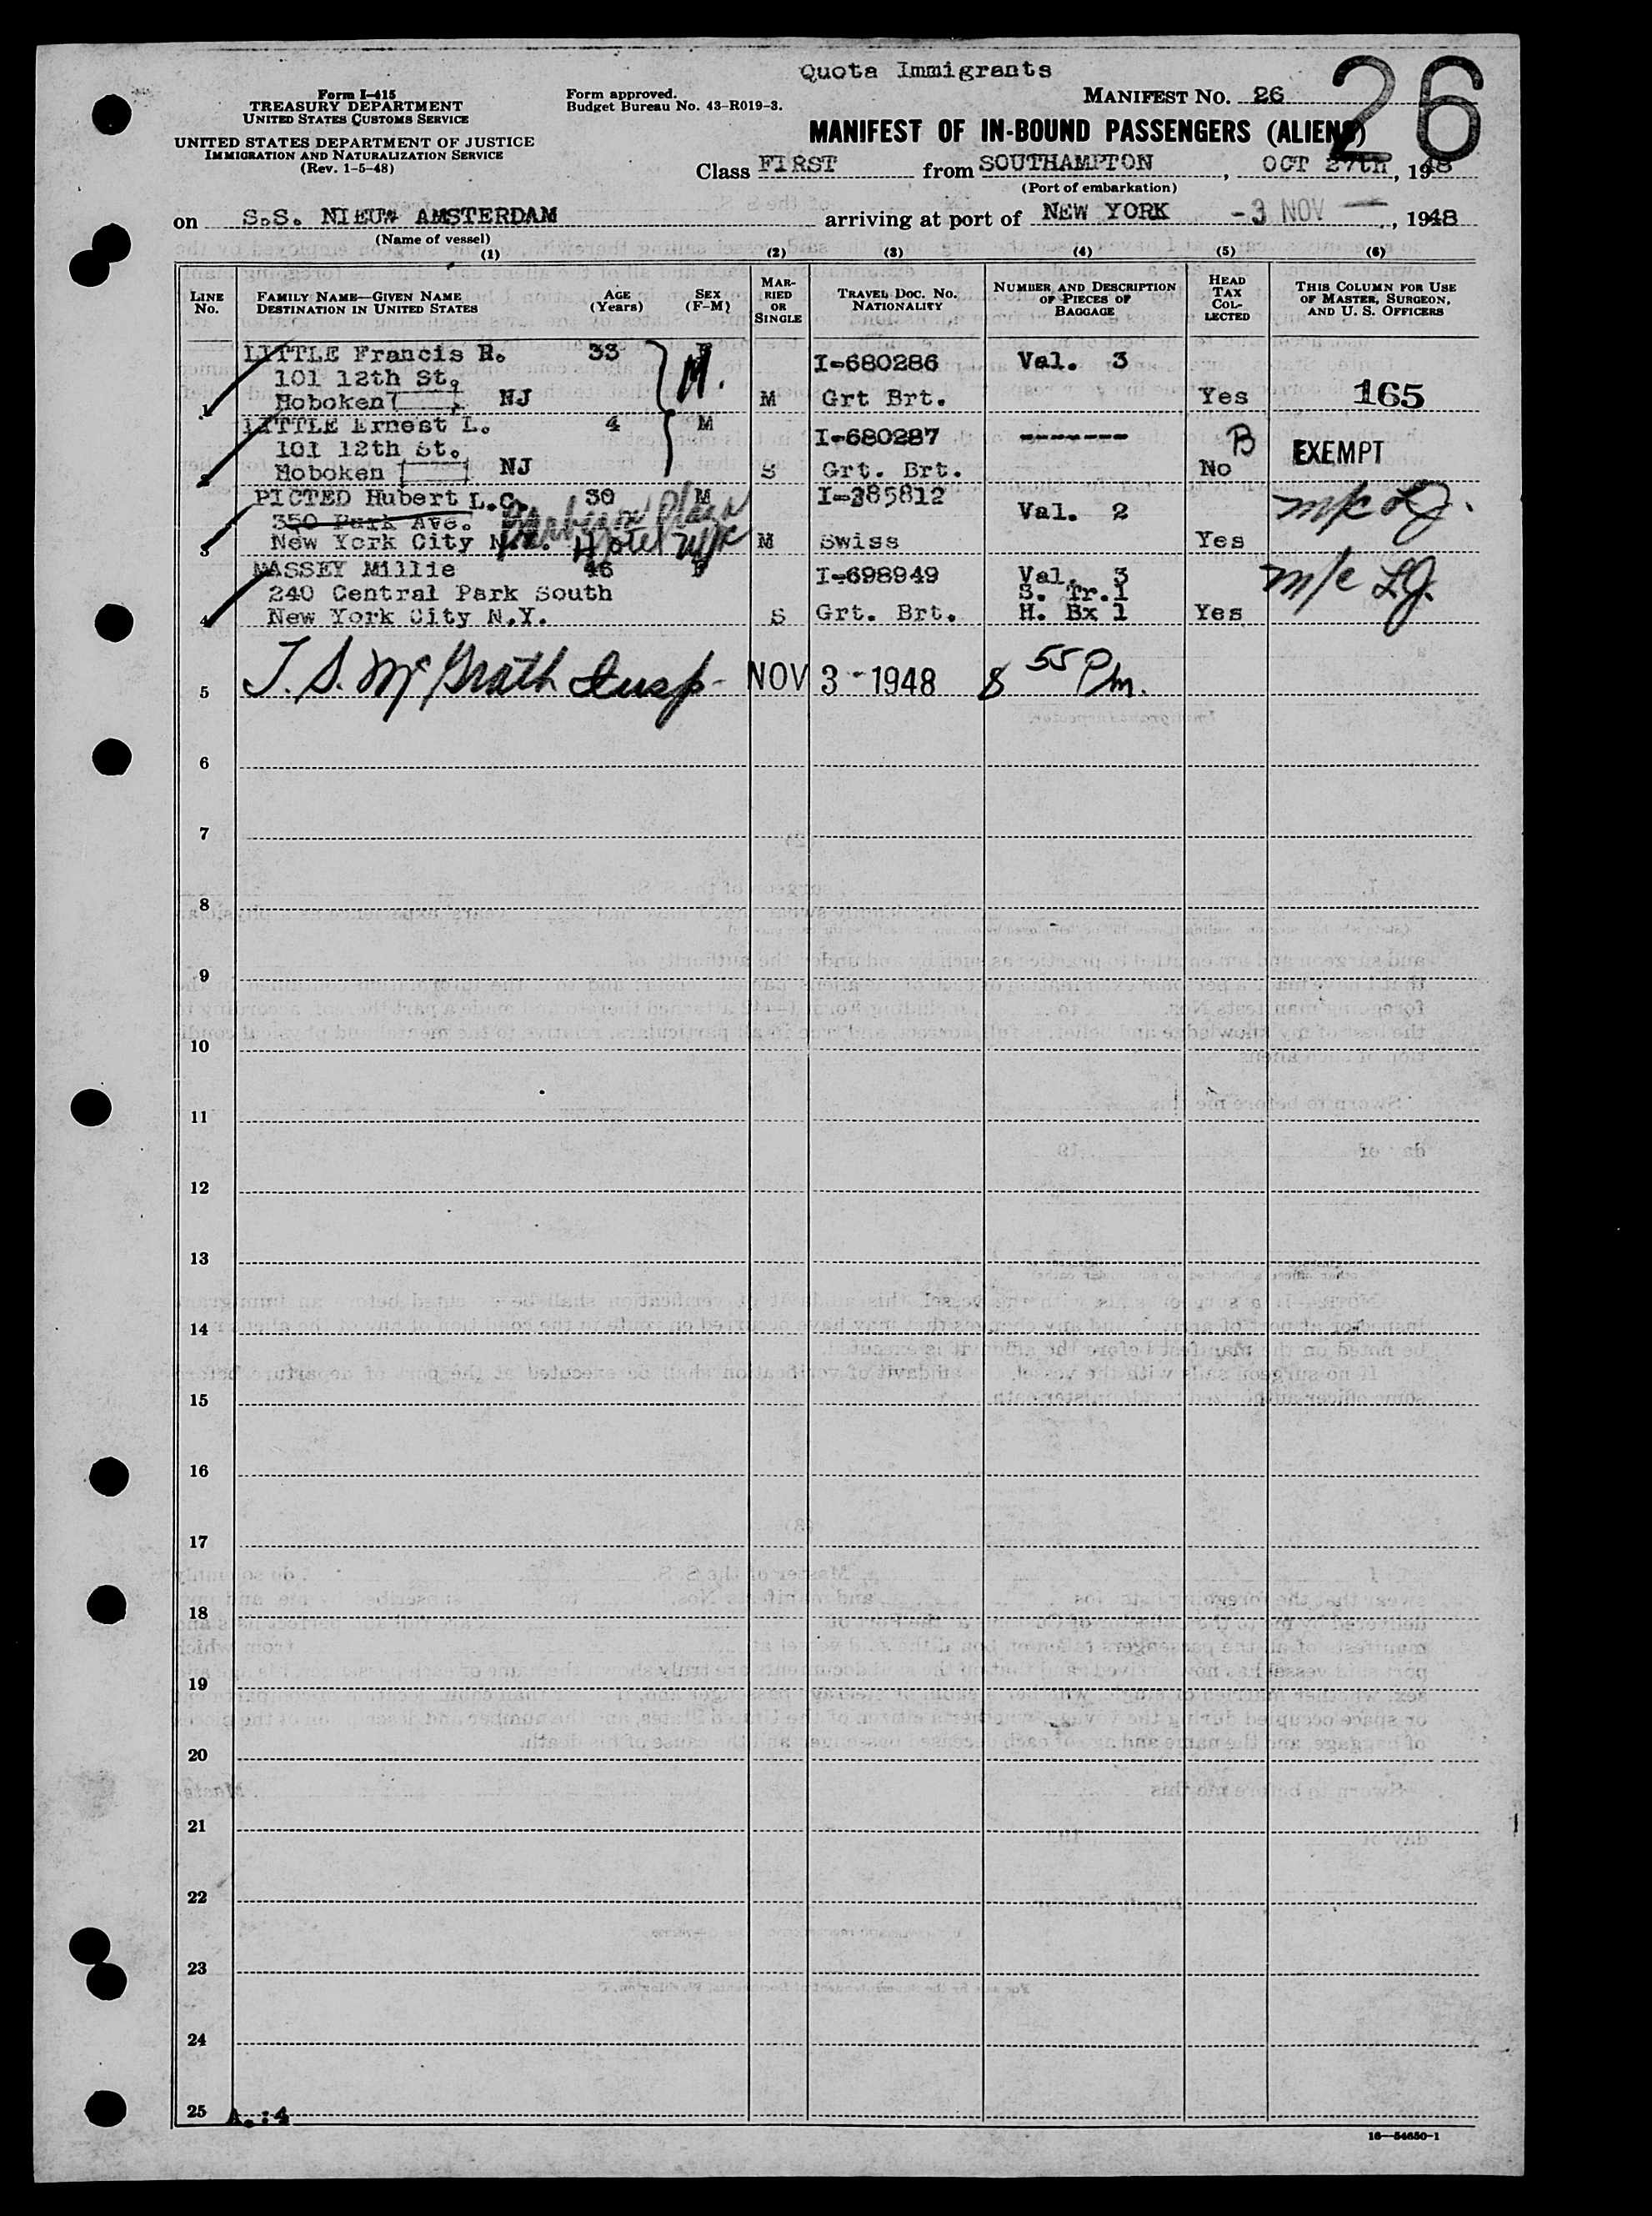 Quota Immigrants
26
Form I-415
TREASURY DEPARTMENT
UNITED STATES CUSTOMS SERVICE
UNITED STATES DEPARTMENT OF JUSTICE
IMMIGRATION AND NATURALIZATION SERVICE
(Rev. 1-5-48)
Form approved.
Budget Bureau No. 43-R019-3.
MANIFEST No. 26
MANIFEST OF IN-BOUND PASSENGERS (ALIENS)
Class FIRST from SOUTHAMPTON, OCT 27th, 1948
(Port of embarkation)
on S.S. NIEUW AMSTERDAM arriving at port of NEW YORK -3 NOV, 1948
(Name of vessel)
(1) (2) (3) (4) (5) (6)
LINE No. FAMILY NAME—GIVEN NAME DESTINATION IN UNITED STATES AGE (Years) SEX (F-M) MARRIED OR SINGLE TRAVEL DOC. No. NATIONALITY NUMBER AND DESCRIPTION OF PIECES OF BAGGAGE HEAD TAX COLLECTED THIS COLUMN FOR USE OF MASTER, SURGEON, AND U. S. OFFICERS
LITTLE Francis R. 33 F M. I-680286 Val. 3
101 12th St.
1 Hoboken NJ M Grt Brt. Yes 165
LITTLE Ernest L. 4 M I-680287 -------
101 12th St. B EXEMPT
2 Hoboken NJ S Grt. Brt. No
PICTED Hubert L.C. 30 M I-385812 Val. 2 m/c LJ.
350 Park Ave. Barbizon Plaza
3 New York City N.Y. Hotel NYC M Swiss Yes
MASSEY Millie 46 F I-698949 Val. 3 m/c LJ.
240 Central Park South S. Tr.1
4 New York City N.Y. S Grt. Brt. H. Bx 1 Yes
5 T. S. McGrath Insp- NOV 3-1948 8 55 Pm.
6
7
8
9
10
11
12
13
14
15
16
17
18
19
20
21
22
23
24
25 A.:4
16—54650-1